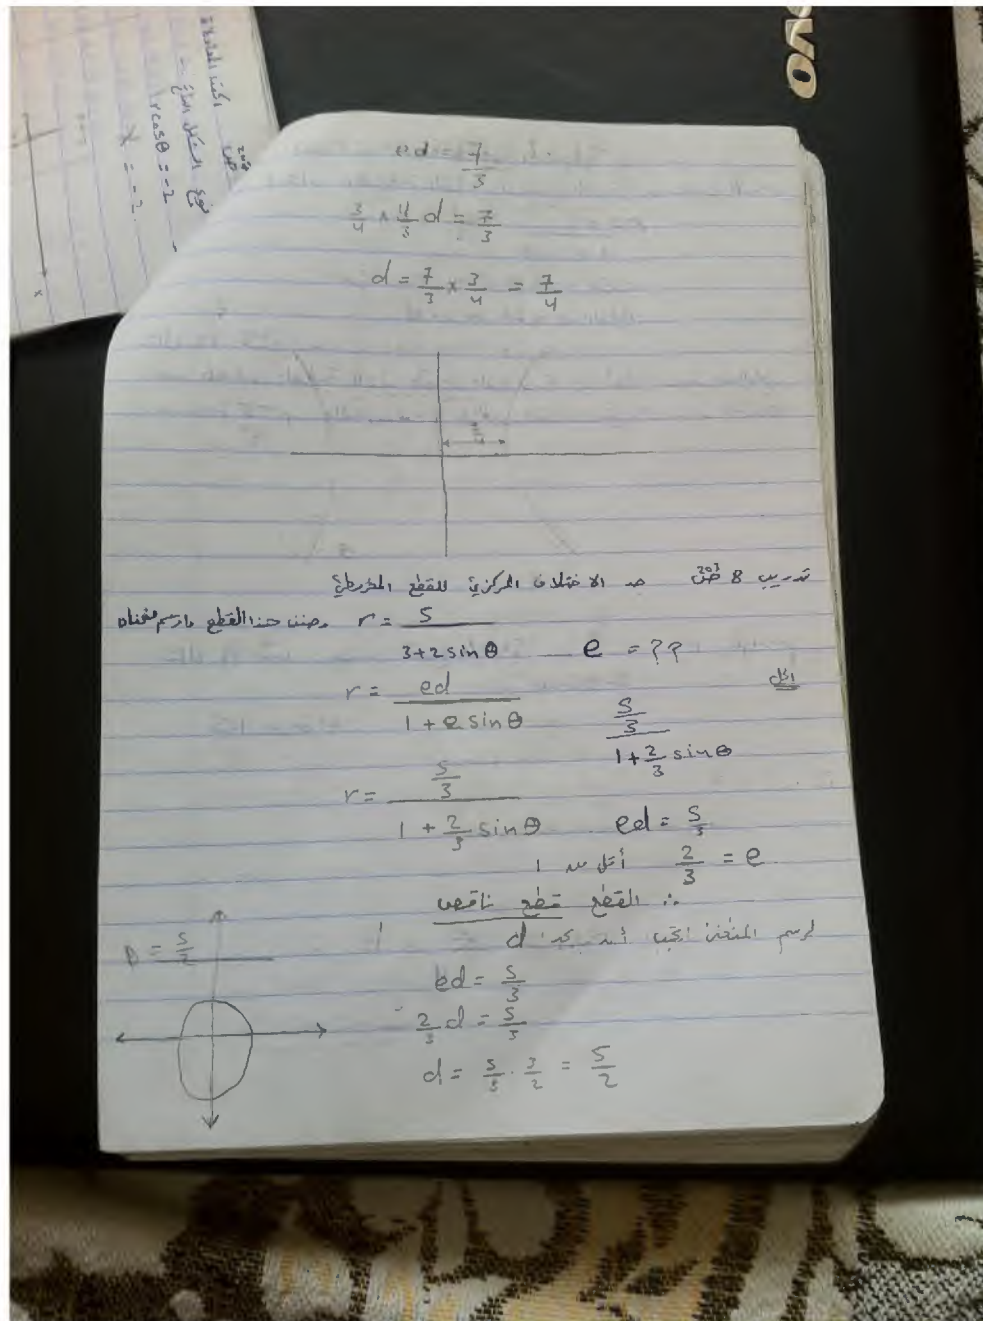 ed = 7/3
3/4 × 4/3 d = 7/3
d = 7/3 × 3/4 = 7/4
تدريب 8 ص 203 جد الاختلاف المركزي للقطع المخروطي
r = 5 / (3+2sinθ) وصنف هذا القطع وارسم منحناه
e = ??
الحل
r = ed / (1 + e sinθ)
(5/3) / (1 + 2/3 sinθ)
r = (5/3) / (1 + 2/3 sinθ)
ed = 5/3
2/3 = e أقل من 1
∴ القطع قطع ناقص
لرسم المنحنى أن d
ed = 5/3
D = 5/2
2/3 d = 5/3
d = 5/3 · 3/2 = 5/2
نوع الشكل
rcosθ = -2
X = -2
x